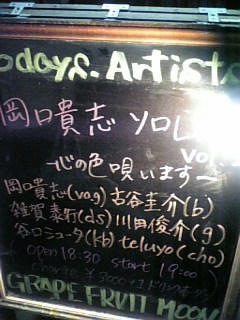 odays. Artists
岡口貴志 ソロL
vol.
心の色唄います
岡口貴志(vo,g) 古谷圭介(b)
雑賀恭行(ds) 川田俊介(g)
谷口シュータ(kb) teluyo(cho)
open 18:30 start 19:00
charge ¥3000+2ドリンク
GRAPE FRUIT MOON